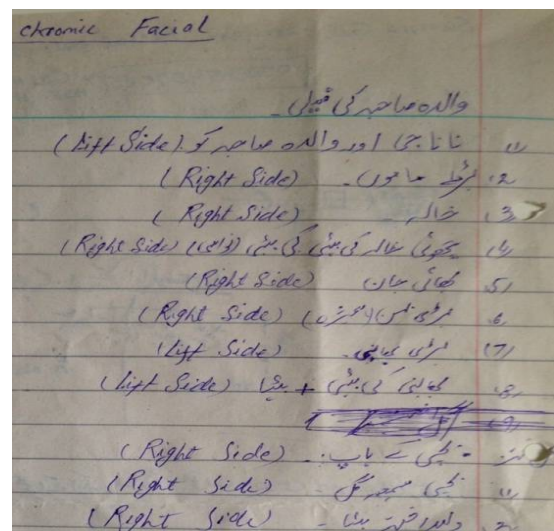 chronic Facial
والدہ صاحبہ کی فیملی۔
(1) نانا جی اور والدہ صاحبہ کو (Lift Side)
2. بڑے ماموں۔ (Right Side)
(3) خالہ۔ (Right Side)
(4) چھوٹی خالہ کی بیٹی کی بیٹی (نواسی) (Right Side)
5. بھائی جان (Right Side)
6. بڑی بہن (Right Side)
(7) بڑی بھابی۔ (Lift Side)
8. بھابی کی بیٹی + بیٹا (Lift Side)
(9)
کے باپ۔ (Right Side)
(1) گل (Right Side)
2. بیٹا (Right Side)